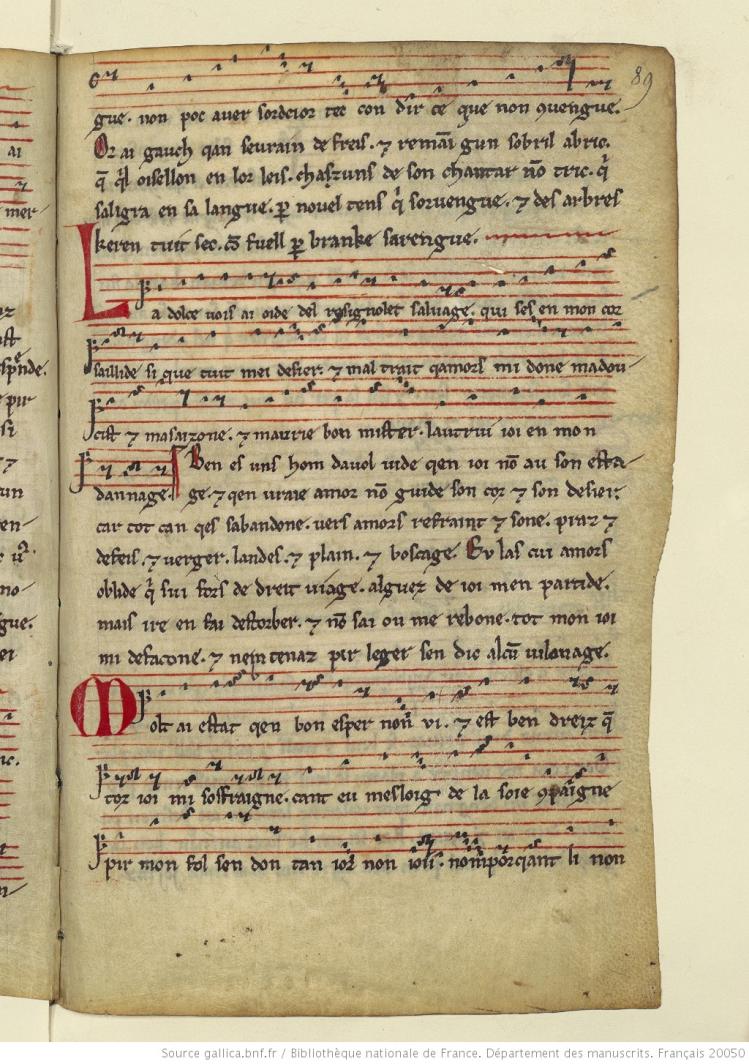 89
gue. non poc aver sordeior tec con dir ce que non ꝯvengue.
Or ai gauch qan seurain de freis. ⁊ remāi gun sobril abric.
q̄ oisellon en lor leis. chaszuns de son chantar nō tric. qͥ
saligra en sa langue. ꝑ novel tens qͥ sorvengue. ⁊ des arbres
keren tuit sec. fuell ꝑ branke sarengue.
La dolce vois ai oide del rosignolet salvage. qui ses en mon cor
saillide si que tuit mei desier. ⁊ mal trait qamors mi done madou
cist ⁊ masaizone. ⁊ maurie bon mister. lautrui ioi en mon
dannage.
Ben es uns hom davol vide qen ioi nō au son esta
ge. ⁊ qen vraie amor nō guide son cor ⁊ son desier
car tot can qes sabandone. vers amors refraint ⁊ sone. praz ⁊
defeis. ⁊ verger. landes. ⁊ plain. ⁊ boscage. Eu las cui amors
oblide qͥ sui fors de dreit viage. alguez de ioi men partide.
mais ire en fai destorber. ⁊ nō sai ou me rebone. tot mon ioi
mi desacone. ⁊ nein tenaz pir leger sen die alcū vilonage.
Molt ai estat qen bon esper non vi. ⁊ est ben dreiz q̄
toz ioi mi soffraigne. cant eu mesloig de la soie ꝯpaigne
pir mon fol sen don tan ior non ioli. li non
Source gallica.bnf.fr / Bibliothèque nationale de France. Département des manuscrits. Français 20050